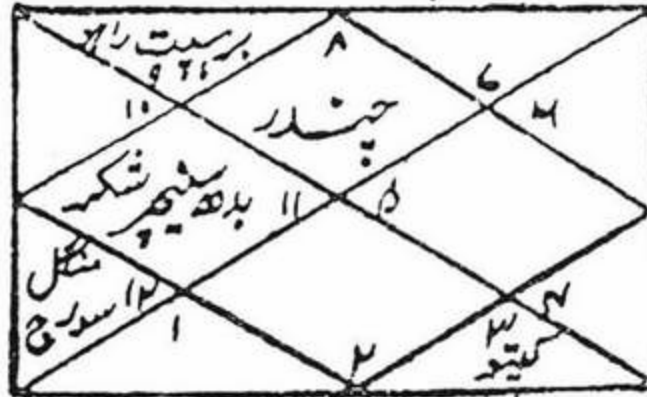 برہسپت راہو
۹
۸
۱۰
چندر
۷
۶
بدھ سنیچر شکر
۱۱
۵
منگل
سورج
۱۲
۱
۲
۳
کیتو
۴